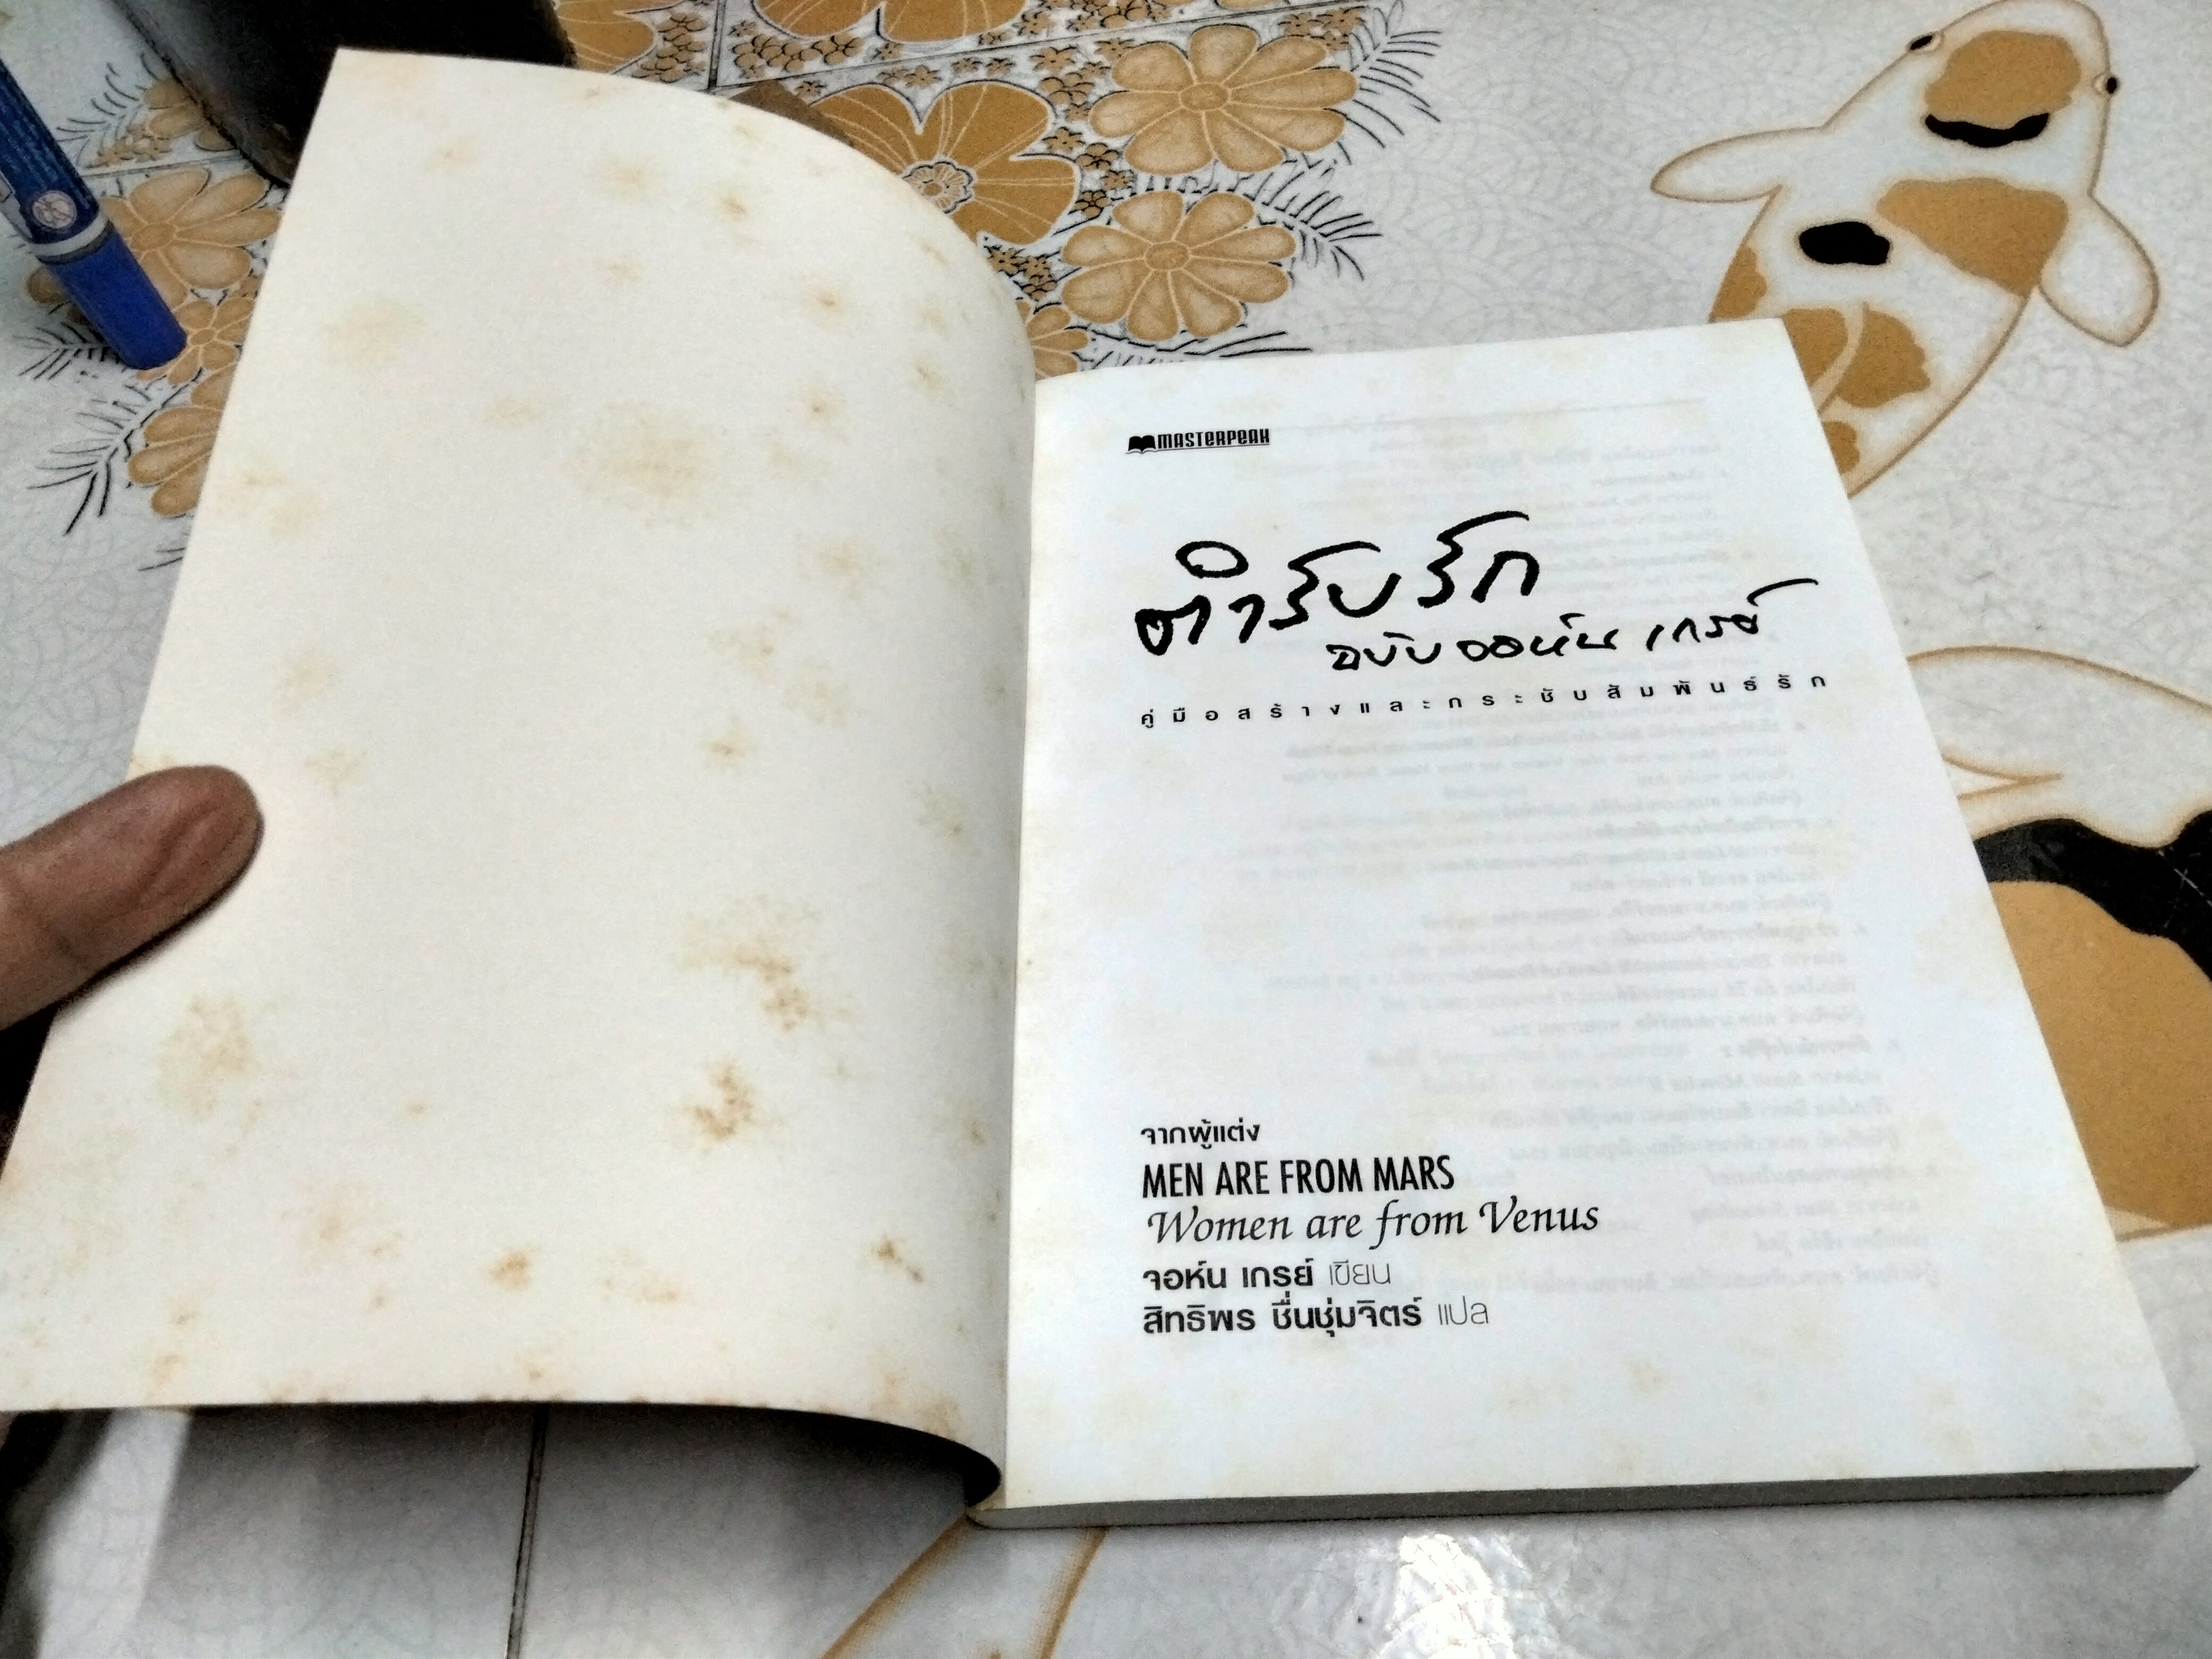 MASTERPEAK
ตำรับรัก
ฉบับจอห์น เกรย์
คู่มือสร้างและกระชับสัมพันธ์รัก
จากผู้แต่ง
MEN ARE FROM MARS
Women are from Venus
จอห์น เกรย์ เขียน
สิทธิพร ชื่นชุ่มจิตร์ แปล